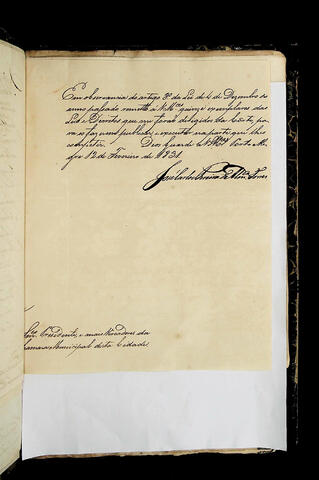 Em observancia do artigo 8º da Lei de 4 de Dezembro do
anno passado remetto á V. Mces quinze exemplares das
Leis e Decretos que me forão dirigidos da Côrte, pa
ra o fazerem publicar, e executar na parte que lhes
competir. Deos Guarde a V. Mces
12 de Fevereiro de 1831.
José Carlos Pereira de Torres
Snres Presidente, e mais Vereadores da
Camara Municipal desta Cidade.